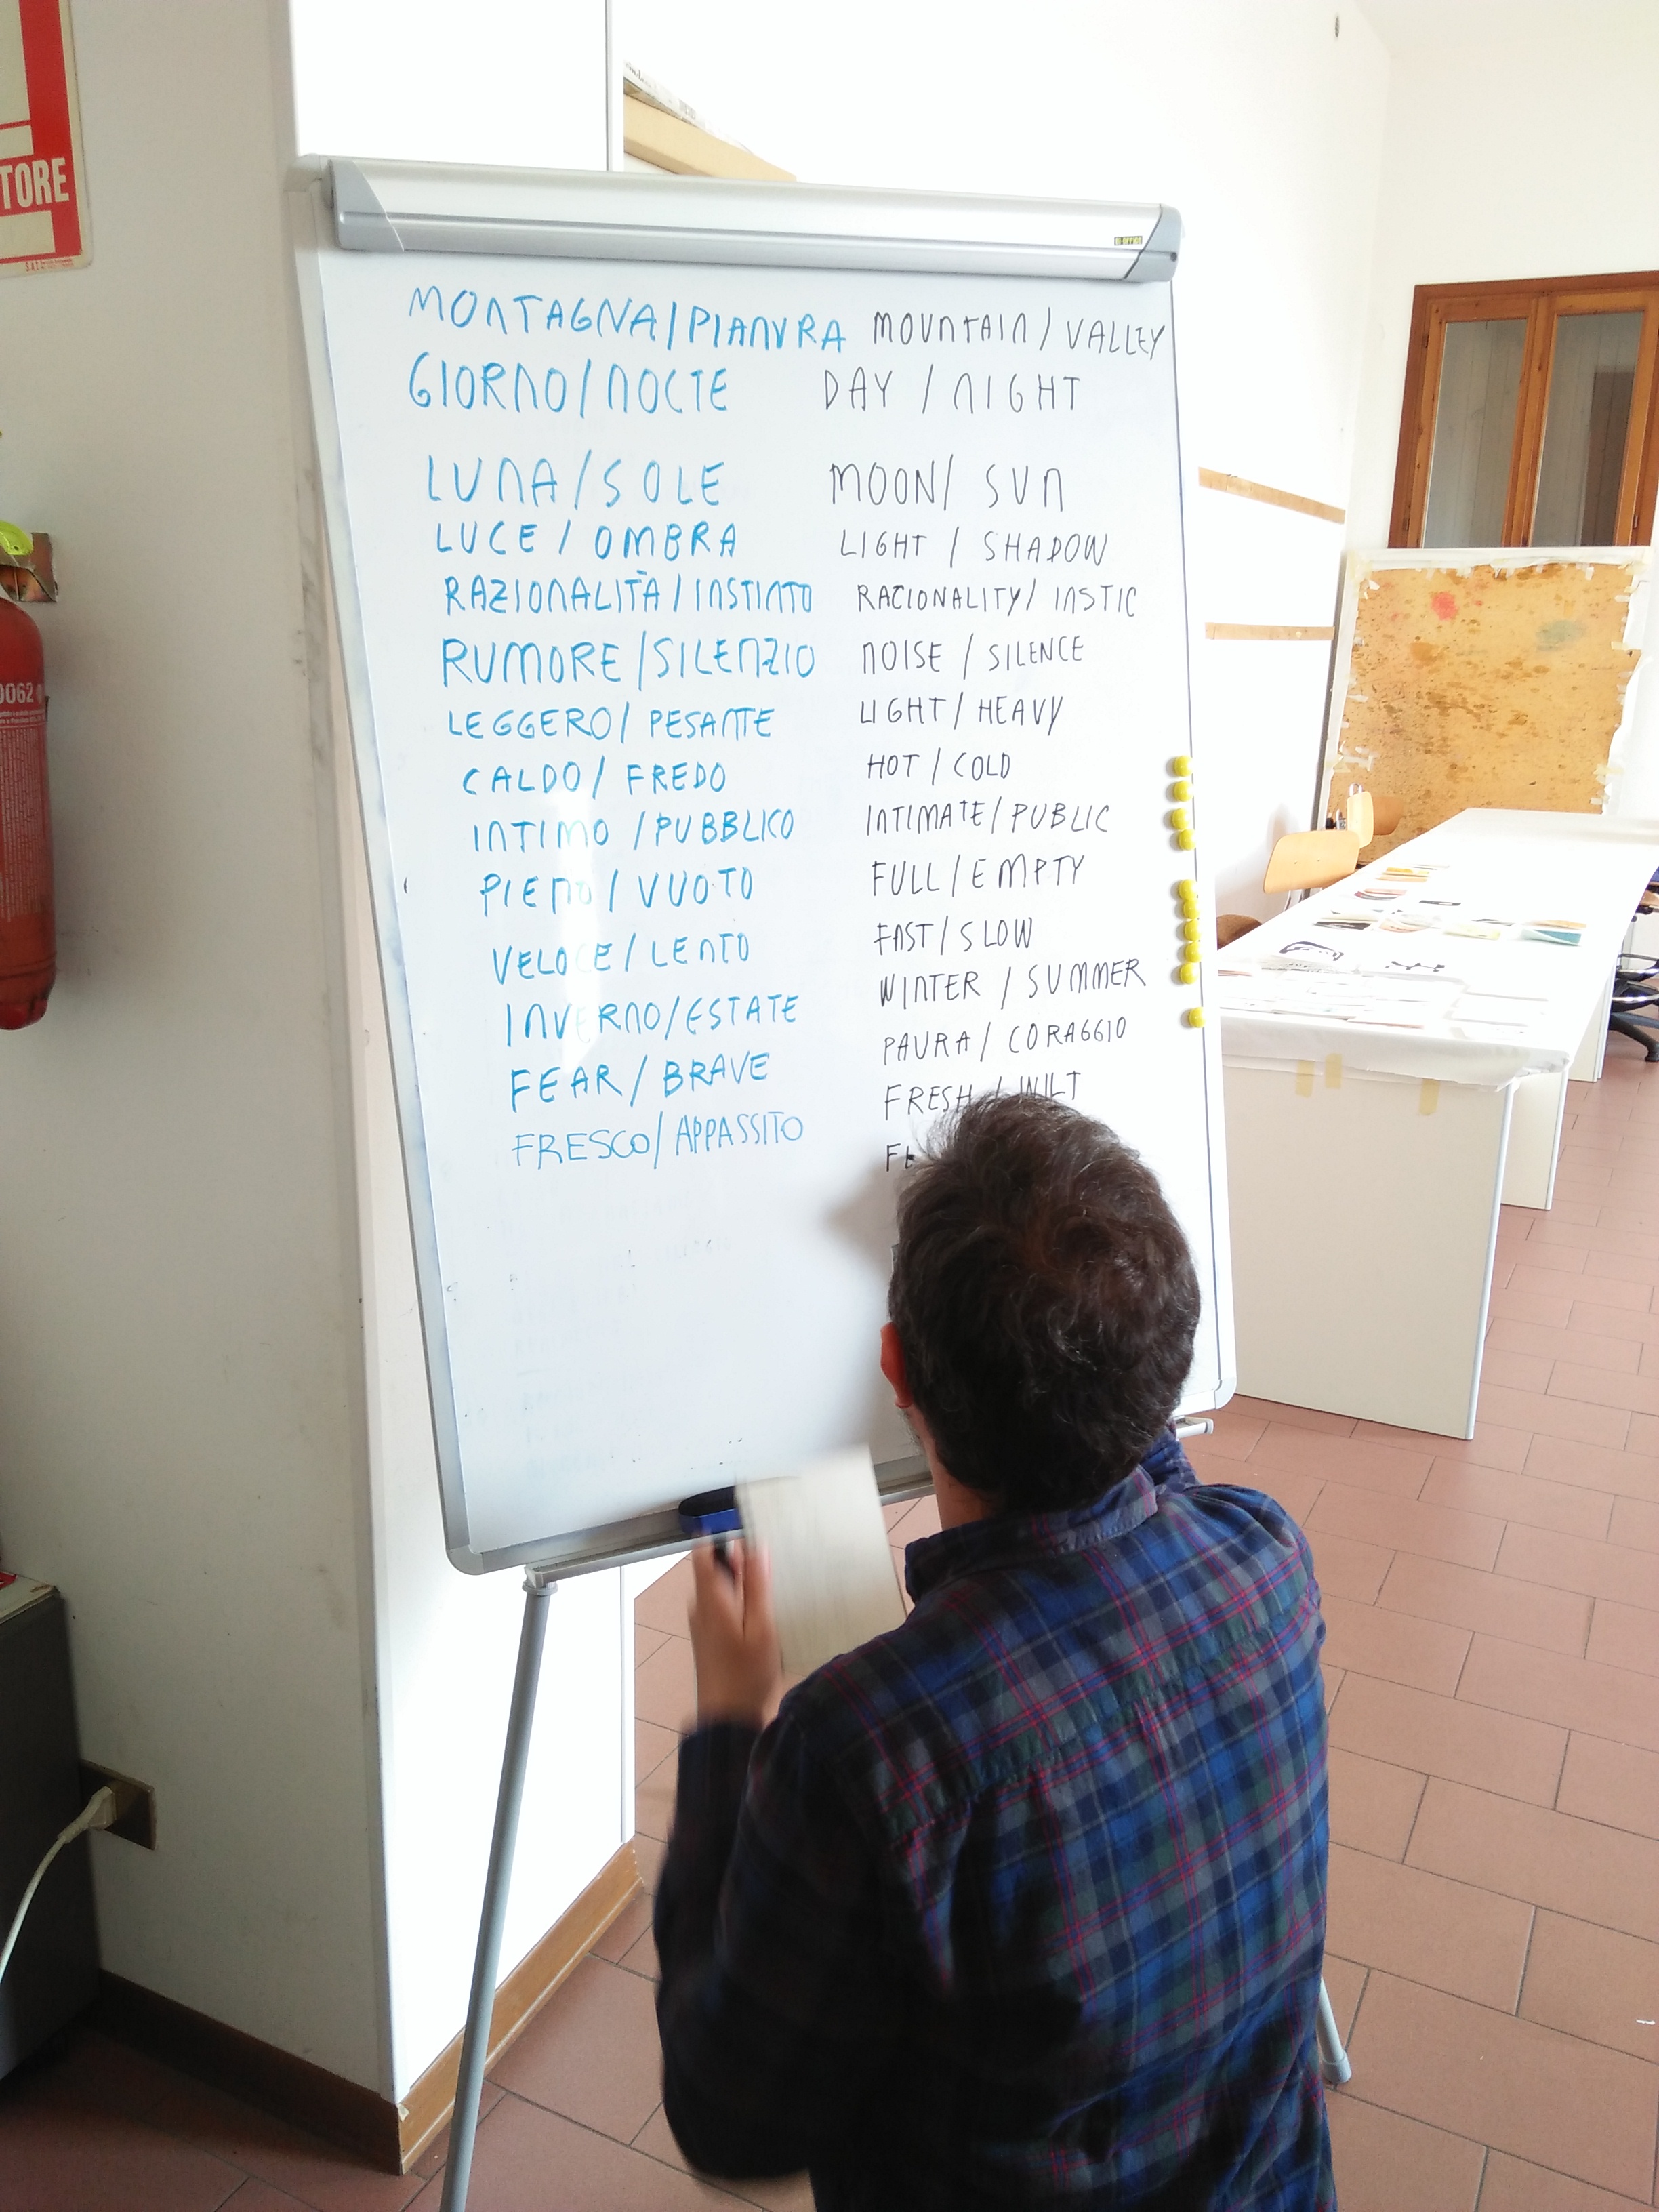 TORE
MONTAGNA/PIANURA MOUNTAIN/VALLEY
GIORNO/NOCTE DAY / NIGHT
LUNA/SOLE MOON/ SUN
LUCE / OMBRA LIGHT / SHADOW
RAZIONALITÀ/INSTINTO RACIONALITY/ INSTIC
RUMORE/SILENZIO NOISE / SILENCE
LEGGERO/ PESANTE LIGHT/HEAVY
CALDO/ FREDO HOT / COLD
INTIMO /PUBBLICO INTIMATE/PUBLIC
PIENO/VUOTO FULL/EMPTY
VELOCE/LENTO FAST/SLOW
INVERNO/ESTATE WINTER / SUMMER
FEAR/BRAVE PAURA/ CORAGGIO
FRESCO/APPASSITO FRESH / WILT
0062